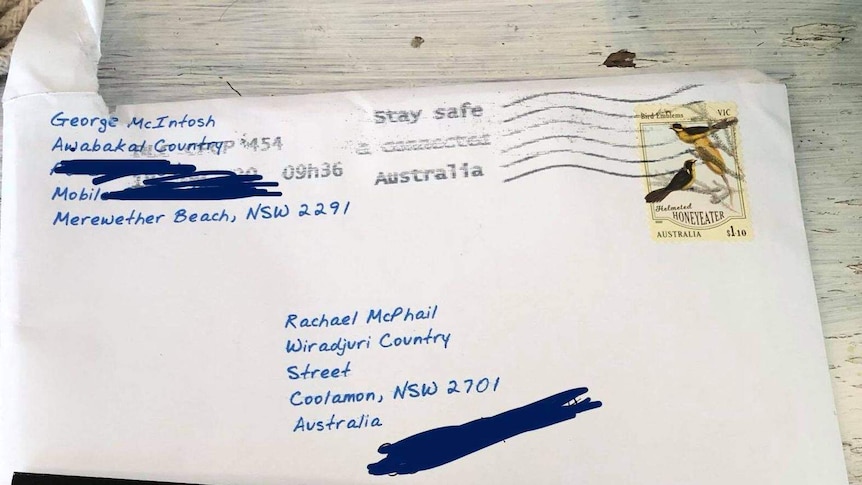 George McIntosh
Awabakal Country
Mobil
Merewether Beach, NSW 2291
454
09h36
Stay safe
& connected
Australia
Bird Emblems VIC
Helmeted
HONEYEATER
AUSTRALIA $1.10
Rachael McPhail
Wiradjuri Country
Street
Coolamon, NSW 2701
Australia